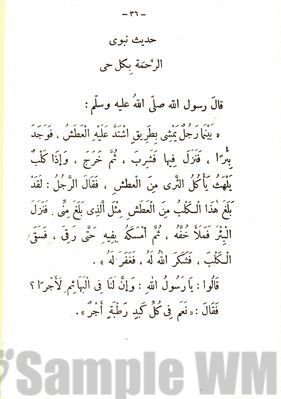 - ٣٦ -
حديث نبوى
الرَّحْمَة بِكل حى
قالَ رسول الله صلّى اللهُ عليهِ وسلّم :
« بَيْنَمَا رَجُلٌ يَمْشِى بِطَرِيقٍ اشْتَدَّ عَلَيْهِ الْعَطَشُ ، فَوَجَدَ
بِئْرًا ، فَنَزَلَ فِيهَا فَشَرِبَ ، ثُمَّ خَرَجَ ، وَإِذَا كَلْبٌ
يَلْهَثُ يَأْكُلُ الثَّرَى مِنَ العَطشِ ، فَقَالَ الرَّجُلُ : لَقَدْ
بَلَغَ هٰذَا الْكَلْبُ مِنَ العَطَشِ مِثْلَ الَّذِى بَلَغَ مِنِّى فَنَزَلَ
الْبِئْرَ فَمَلَأَ خُفَّهُ ، ثُمَّ أَمْسَكَهُ بِفِيهِ حَتَّى رَقِىَ ، فَسَقَى
الْكَلْبَ ، فَشَكَرَ اللهُ لَهُ ، فَغَفَرَ لَهُ » .
قَالُوا : يَا رَسُولَ اللهِ : وَإِنَّ لَنَا فِى الْبَهَائِمِ لَأَجْرًا ؟
فَقَالَ : « نَعَمْ فِى كُلِّ كَبِدٍ رَطْبَةٍ أَجْرٌ » .
Sample WM